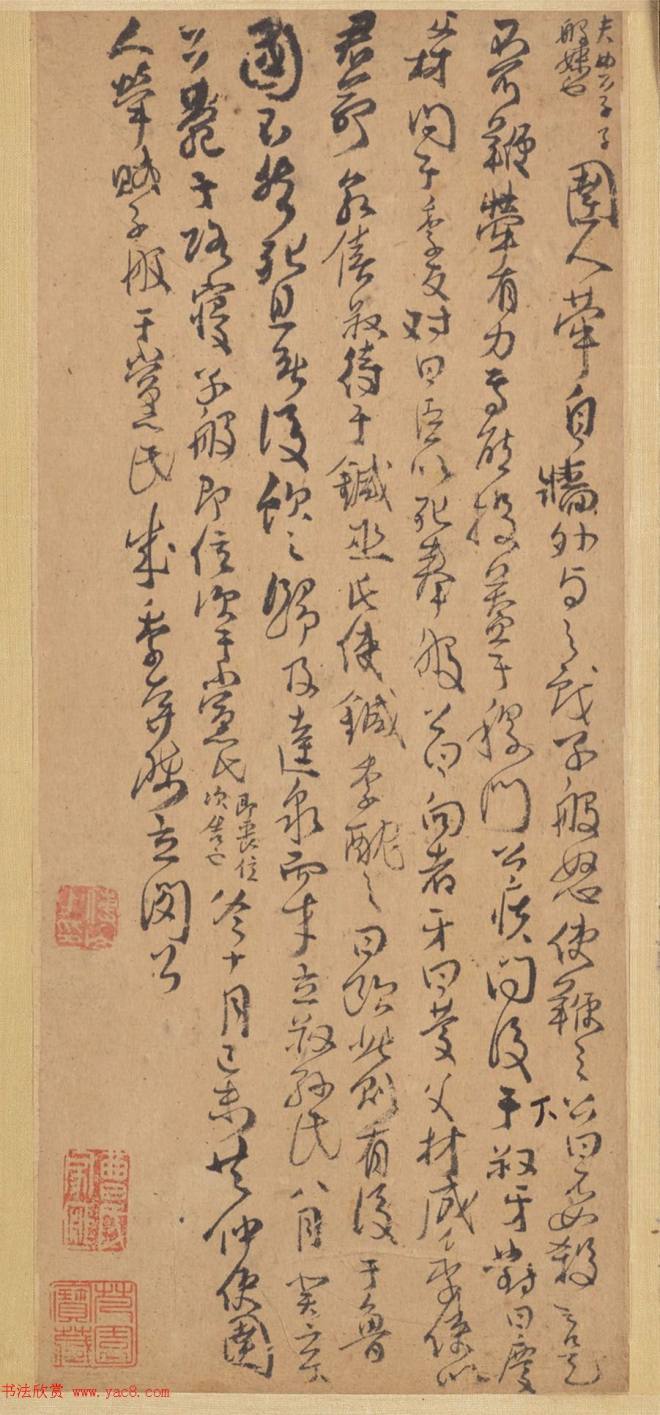 女公子子
般妹也
圉人犖自牆外与之戲子般怒使鞭之公曰不如殺之是
不可鞭犖有力焉能投蓋于稷門公疾問後于叔牙對曰慶
父材問于季友对曰臣以死奉般公曰向者牙曰慶父材成季使以
君命命僖叔待于鍼巫氏使鍼季酖之曰飲此則有後于魯
國不然死且無後飲之歸及逵泉而卒立叔孫氏八月癸亥
公薨于路寢子般即位次于黨氏即喪位次舍也冬十月己未共仲使圉
人犖賊子般于黨氏成季奔陳立閔公
书法欣赏 www.yac8.com